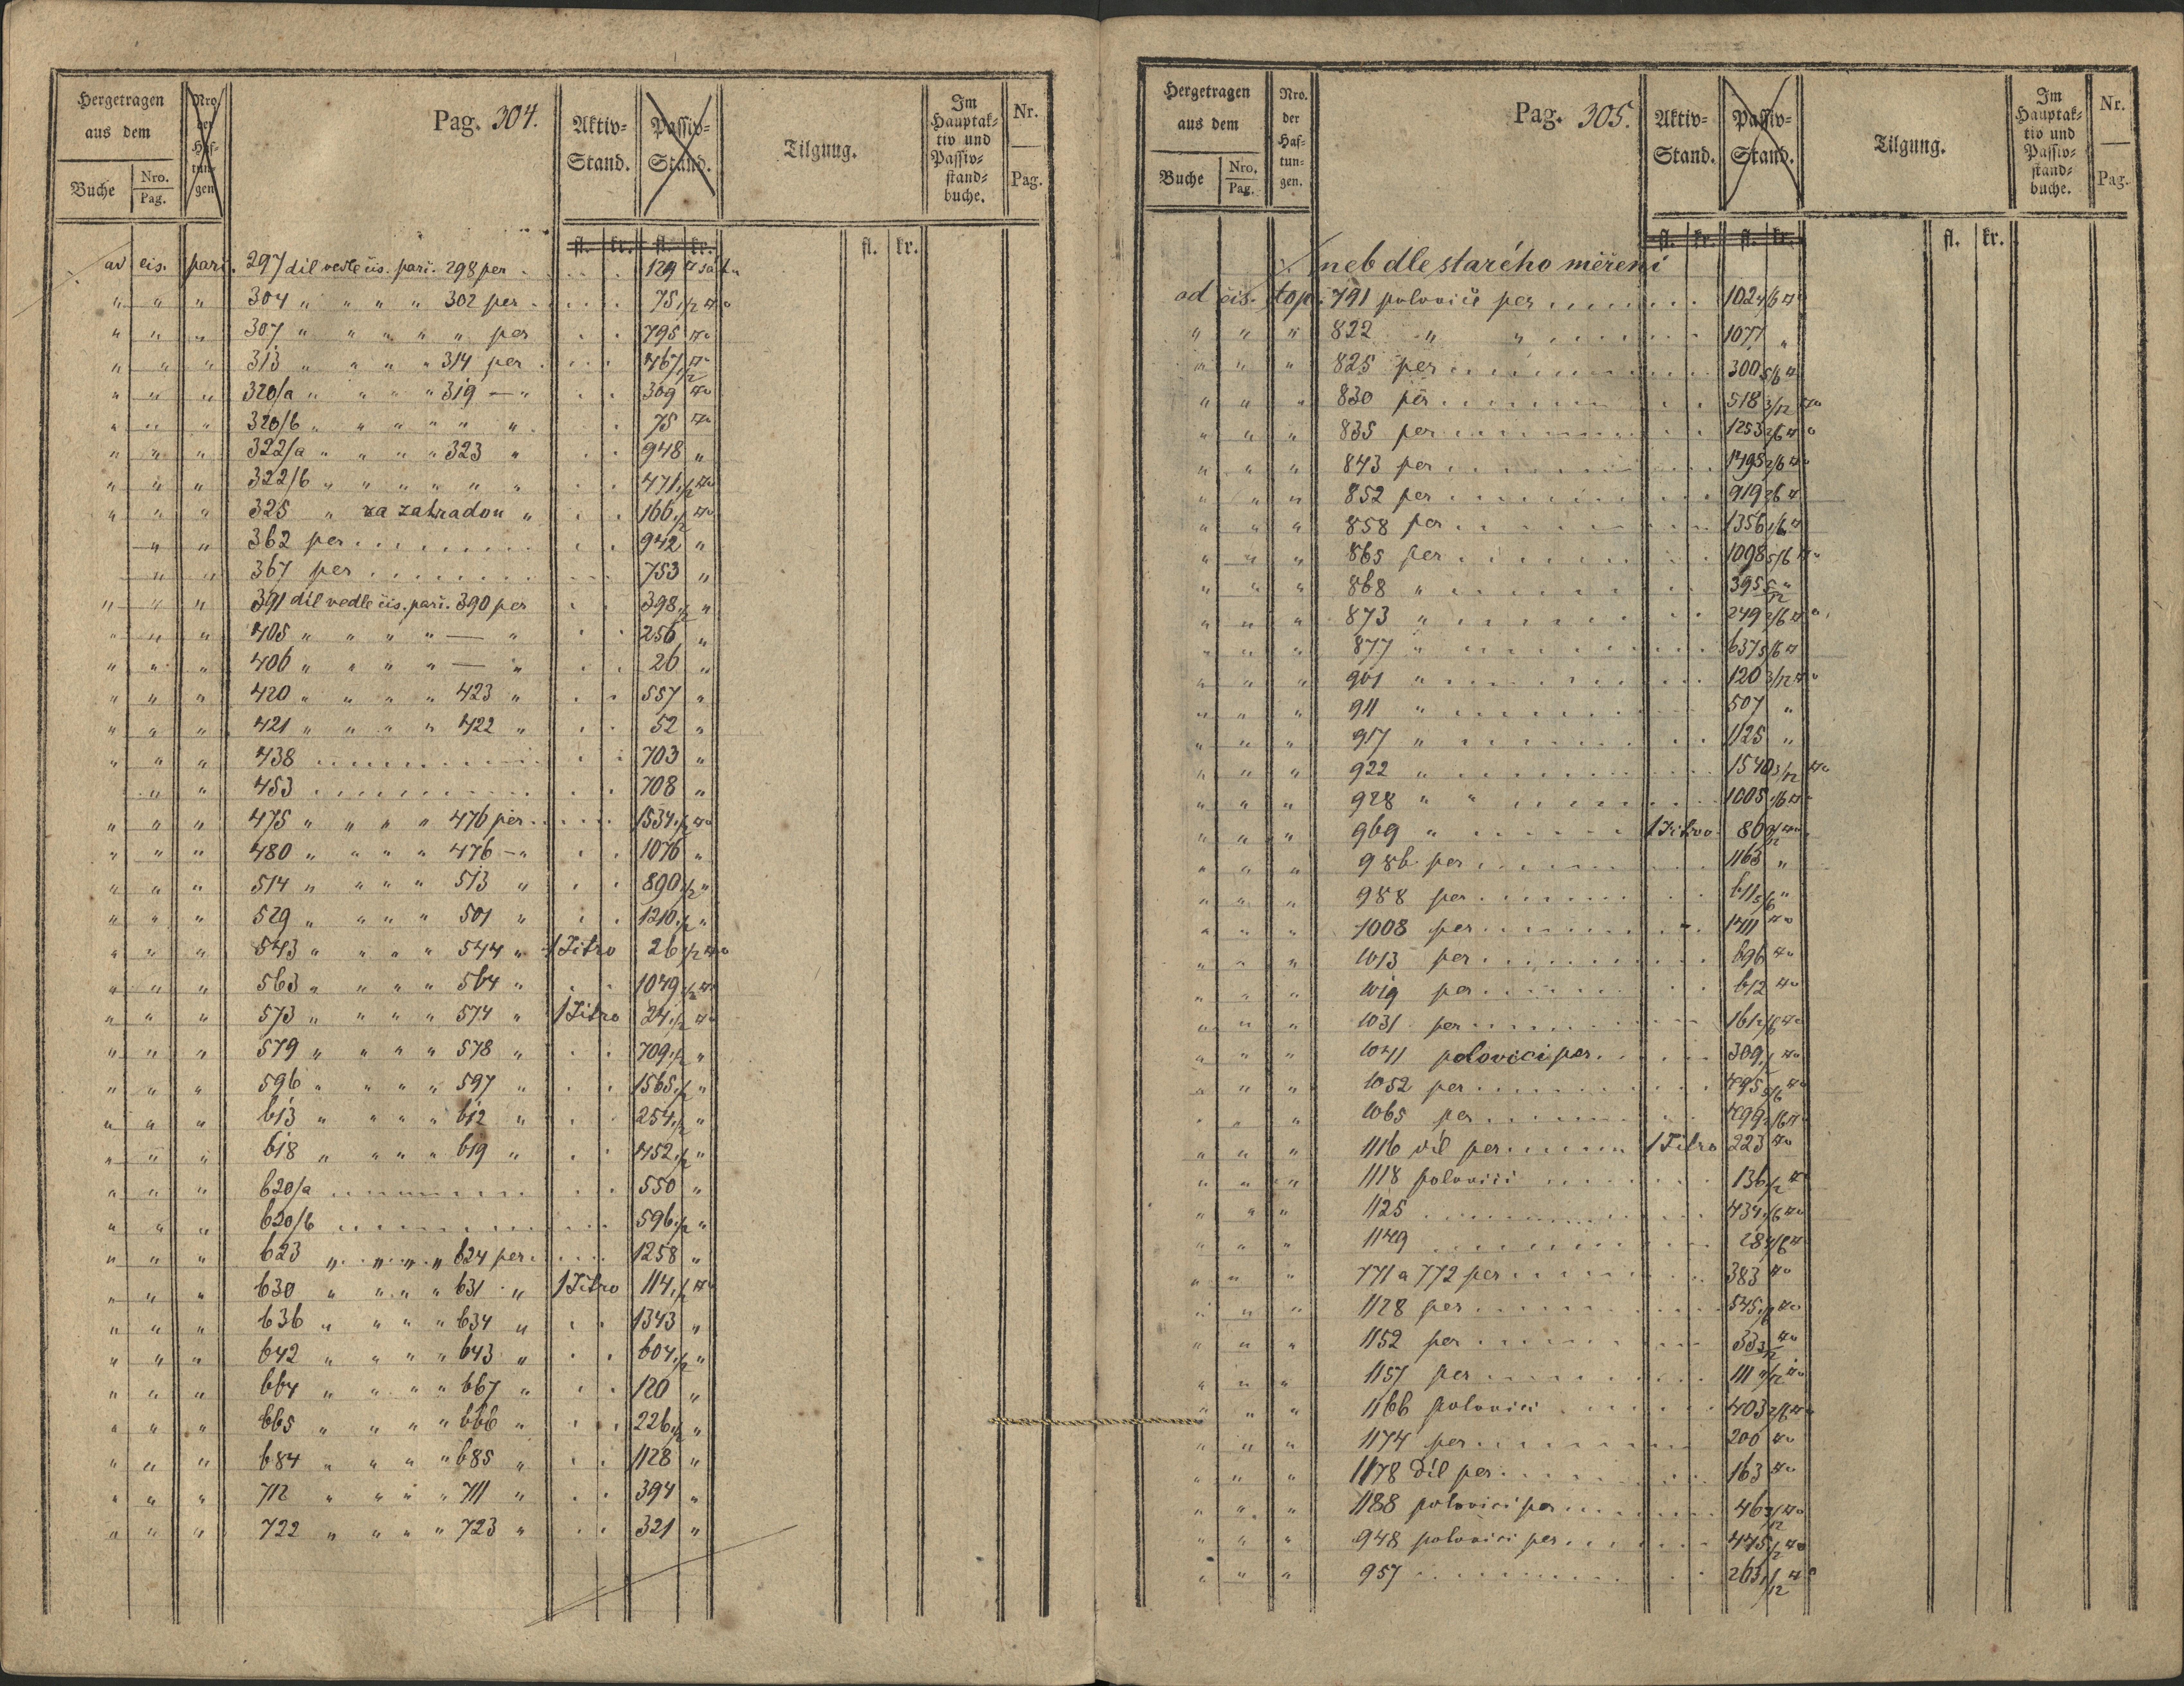 Hergetragen aus dem
Buche
Nro.
Pag.
Nro. der Haf-tun-gen
Pag. 304.
Aktiv-Stand.
Passiv-Stand.
Tilgung.
Im Hauptak-tiv und Passiv-stand-buche.
Nr.
Pag.
fl. kr. fl. kr. fl. kr.
od čis. parc. 297 díl vedle čis. parc. 298 per . . . 129 □ sáhů
" " " 304 " " " " 302 per . . . 75 1/2 □o
" " " 307 " " " " " per . . 795 □o
" " " 313 " " " " 314 per . . . 467 1/2 □o
" " " 320/a " " " " 319 — " . . 309 □o
" " " 320/b " " " " " " . . 75 □o
" " " 322/a " " " " 323 " . . 948 "
" " " 322/b " " " " " " . . 471 1/2 □o
" " " 325 " za zahradou " . . 166 1/2 □o
" " 362 per . . . . . . . . . 942 "
" " 367 per . . . . . . . . . 753 "
" " " 391 díl vedle čis. parc. 390 per . . 398 1/2 "
" " " 405 " " " " — " . . 256 "
" " " 406 " " " " — " . . 26 "
" " " 420 " " " " 423 " . . 557 "
" " " 421 " " " " 422 " . . 52 "
" " " 438 . . . . . . . . . . 703 "
" " 453 . . . . . . . . . . 708 "
" " " 475 " " " " 476 per . . . . 1534 1/2 □o
" " " 480 " " " " 476 — " . . 1076 "
" " " 514 " " " " 513 " . . 890 1/2 "
" " " 529 " " " " 501 " . . 1210 1/2 "
" " " 543 " " " " 544 " 1 Jitro 26 1/2 □o
" " " 563 " " " " 564 " . . 1049 1/2 □o
" " " 573 " " " " 574 " 1 Jitro 24 1/2 □o
" " " 579 " " " " 578 " . . 709 1/2 "
" " " 596 " " " " 597 " . . 1565 1/2 "
" " " 613 " " " " 612 " . . 254 1/2 "
" " " 618 " " " " 619 " . . 452 1/2 "
" " " 620/a . . . . . . . . . 550 "
" " " 620/b . . . . . . . . . 596 1/2 "
" " " 623 " " " " 624 per . . . . 1258 "
" " " 630 " " " " 631 " 1 Jitro 114 1/2 □o
" " " 636 " " " " 634 " . . 1343 "
" " " 642 " " " " 643 " . . 604 1/2 "
" " " 664 " " " " 667 " . . 120 "
" " " 665 " " " " 666 " . . 226 1/2 "
" " " 684 " " " " 685 " . . 1128 "
" " " 712 " " " " 711 " . . 394 "
" " " 722 " " " " 723 " . . 321 "
Hergetragen aus dem
Buche
Nro.
Pag.
Nro. der Haf-tun-gen.
Pag. 305.
Aktiv-Stand.
Passiv-Stand.
Tilgung.
Im Hauptak-tiv und Passiv-stand-buche.
Nr.
Pag.
fl. kr. fl. kr. fl. kr.
neb dle starého měření
od čis. top. 791 polovici per . . . . . . . 102 4/6 □o
" " " 822 " " . . . . . . . 1077 "
" " " 825 per . . . . . . . . . 300 5/6 □
" " " 830 per . . . . . . . . . 518 3/12 □o
" " " 835 per . . . . . . . . . 1253 2/6 □o
" " " 843 per . . . . . . . . . 1495 2/6 □o
" " " 852 per . . . . . . . . . 919 2/6 □
" " " 858 per . . . . . . . . . 1356 1/6 □
" " " 865 per . . . . . . . . . 1098 5/6 □o
" " " 868 " . . . . . . . . . 395 5/12 "
" " " 873 " . . . . . . . . . 249 2/6 □o
" " " 877 " . . . . . . . . . 637 5/6 □
" " " 901 " . . . . . . . . . 120 3/12 □o
" " " 911 " . . . . . . . . . 507 "
" " " 917 " . . . . . . . . . 1125 "
" " " 922 " . . . . . . . . . 1540 3/12 □o
" " " 928 " " . . . . . . . . 1005 1/6 □
" " " 969 " . . . . . . 1 Jitro
" " " 986 per . . . . . . . . . 1163 "
" " " 988 per . . . . . . . . . 611 5/6 "
" " " 1008 per . . . . . . . . 1411 □o
" " " 1013 per . . . . . . . . 696 □o
" " " 1019 per . . . . . . . . 612 □o
" " " 1031 per . . . . . . . .
" " " 1041 polovici per . . . . . 309 1/2 □o
" " " 1052 per . . . . . . . . 495 5/6 □o
" " " 1065 per . . . . . . . . 499 2/6 □
" " " 1116 díl per . . . . . 1 Jitro 223 □o
" " " 1118 polovici . . . . . . 136 1/2 □
" " " 1125 . . . . . . . . . . 434 1/6 □o
" " " 1149 . . . . . . . . . . 28 4/6 □
" " " 771 a 772 per . . . . . . . 383 □o
" " " 1128 per . . . . . . . . 545 1/6 □o
" " " 1152 per . . . . . . . . 33 3/12 □o
" " " 1157 per . . . . . . . .
" " " 1166 polovici . . . . . . 403 2/6 □o
" " " 1174 per . . . . . . . . 200 □o
" " " 1178 díl per . . . . . . . 163 □o
" " " 1188 polovici per . . . . . 46 3/12 □o
" " " 948 polovici per . . . . . 445 1/2 □o
" " " 957 . . . . . . . . . . 263 1/12 □o